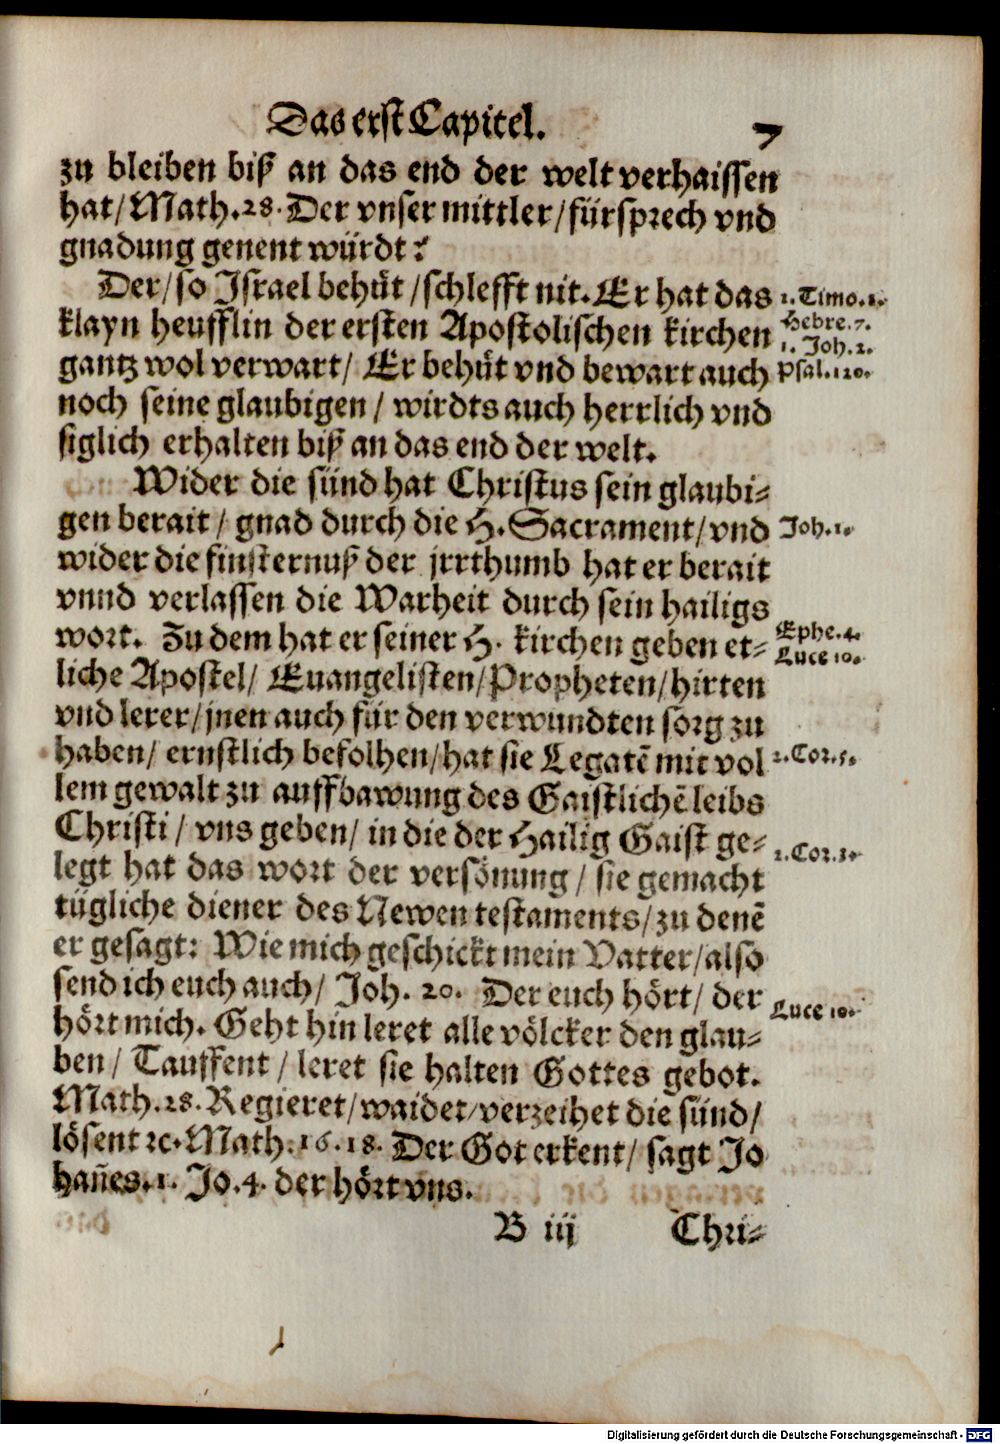 Das erst Capitel. 7
zu bleiben biß an das end der welt verhaissen
hat/ Math. 28. Der vnser mittler/ fürsprech vnd
gnadung genent würdt?
Der/ so Israel behüt/ schlefft nit. Er hat das
klayn heufflin der ersten Apostolischen kirchen
gantz wol verwart/ Er behüt vnd bewart auch
noch seine glaubigen/ wirdts auch herrlich vnd
siglich erhalten biß an das end der welt.
1. Timo. 1.
Hebre. 7.
1. Joh. 2.
Psal. 120.
Wider die sünd hat Christus sein glaubi-
gen berait/ gnad durch die H. Sacrament/ vnd
wider die finsternuß der jrrthumb hat er berait
vnnd verlassen die Warheit durch sein hailigs
wort. Zu dem hat er seiner H. kirchen geben et-
liche Apostel/ Euangelisten/ Propheten/ hirten
vnd lerer/ jnen auch für den verwundten sorg zu
haben/ ernstlich befolhen/ hat sie Legatē mit vol
lem gewalt zu auffbawung des Gaistlichē leibs
Christi/ vns geben/ in die der Hailig Gaist ge-
legt hat das wort der versönung/ sie gemacht
tügliche diener des Newen testaments/ zu denē
er gesagt: Wie mich geschickt mein Vatter/ also
send ich euch auch/ Joh. 20. Der euch hört/ der
hört mich. Geht hin leret alle völcker den glau-
ben/ Tauffent/ leret sie halten Gottes gebot.
Math. 28. Regieret/ waidet/ verzeihet die sünd/
lösent ꝛc. Math. 16. 18. Der Got erkent/ sagt Jo
hañes. 1. Jo. 4. der hört vns.
Joh. 1.
Ephe. 4.
Luce 10.
2. Cor. 5.
2. Cor. 3.
Luce 10.
B iij Chri-
Digitalisierung gefördert durch die Deutsche Forschungsgemeinschaft - DFG